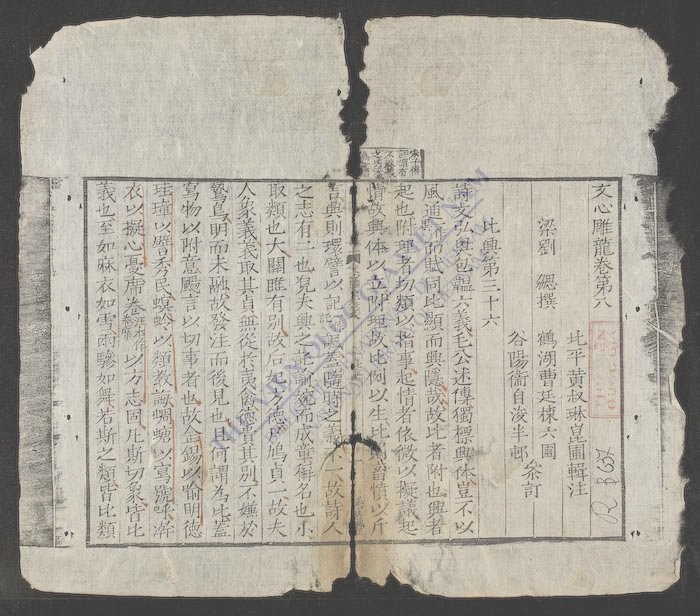 文心雕龍卷第八
北平黃叔琳崑圃輯注
梁劉勰撰 鶴湖曹廷棟六圃
谷陽衞自浚半邨 叅訂
比興第三十六
詩文弘奧包韞六義毛公述傳獨標興体豈不以
風通而賦同比顯而興隱哉故比者附也興者
起也附理者切類以指事起情者依微以擬議起
情故興体以立附理故比例以生比則畜憤以斥
言興則環譬以記諷蓋隨時之義不一故詩人
之志有二也觀夫興之託諭婉而成章稱名也小
取類也大關雎有別故后妃方德尸鳩貞一故夫
人象義義取其貞無從於夷禽德貴其別不嫌於
鷙鳥明而未融故發注而後見也且何謂為比蓋
寫物以附意颺言以切事者也故金錫以喻明德
珪璋以譬秀民螟蛉以類教誨蜩螗以寫號呼澣
衣以擬心憂席卷以方志固凡斯切象皆比
義也至如麻衣如雪兩驂如舞若斯之類皆比類